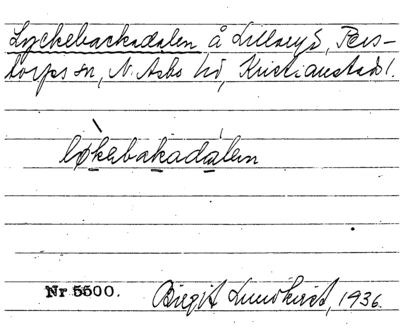 Lyckebackadalen å Lillaryd, Pers-
torps sn, N. Åsbo hd, Kristianstads l.
lökebakadalen
Nr 5500. Birgit Lundkvist, 1936.